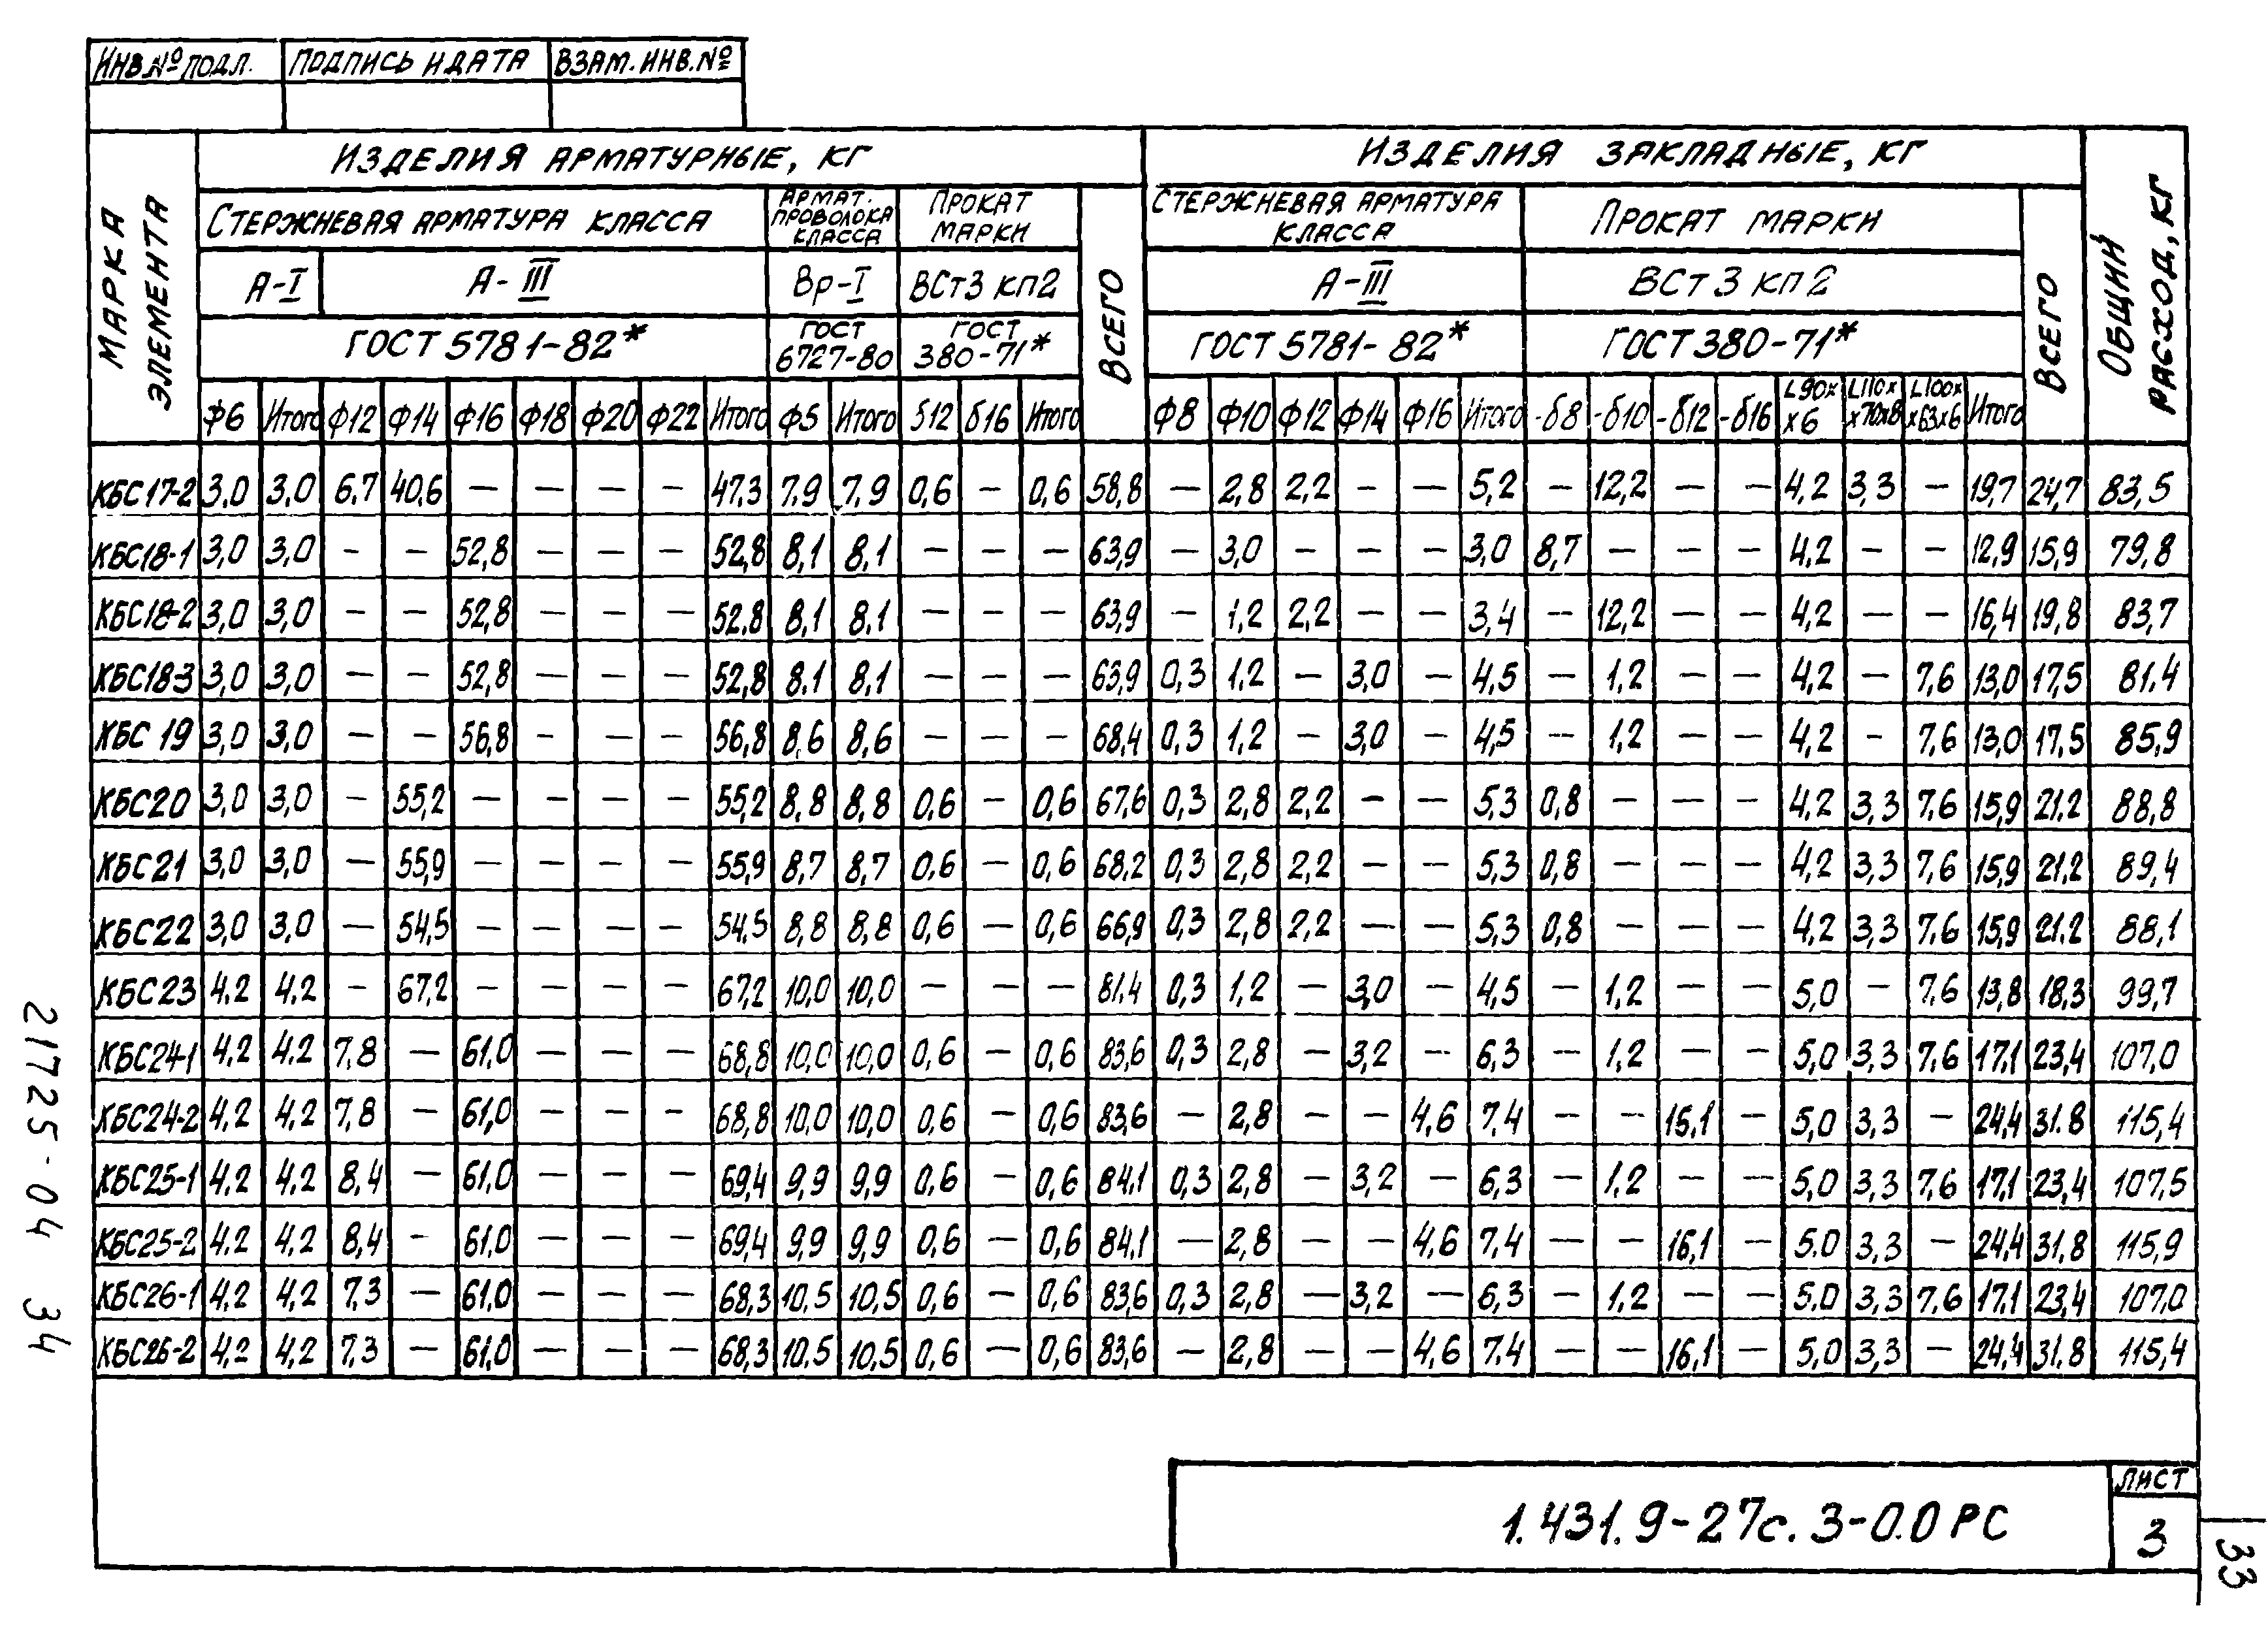 ИНВ.№ ПОДЛ. ПОДПИСЬ И ДАТА ВЗАМ. ИНВ.№
МАРКА ЭЛЕМЕНТА
ИЗДЕЛИЯ АРМАТУРНЫЕ, КГ
ИЗДЕЛИЯ ЗАКЛАДНЫЕ, КГ
ОБЩИЙ РАСХОД, КГ
СТЕРЖНЕВАЯ АРМАТУРА КЛАССА
АРМАТ. ПРОВОЛОКА КЛАССА
ПРОКАТ МАРКИ
ВСЕГО
СТЕРЖНЕВАЯ АРМАТУРА КЛАССА
ПРОКАТ МАРКИ
ВСЕГО
А-I А-III Вр-I ВСт3 кп2 А-III ВСт3 кп2
ГОСТ 5781-82* ГОСТ 6727-80 ГОСТ 380-71* ГОСТ 5781-82* ГОСТ 380-71*
Ф6 Итого Ф12 Ф14 Ф16 Ф18 Ф20 Ф22 Итого Ф5 Итого δ12 δ16 Итого Ф8 Ф10 Ф12 Ф14 Ф16 Итого -δ8 -δ10 -δ12 -δ16 L90х х6 L110х х70х8 L100х х63х6 Итого
КБС17-2 3,0 3,0 6,7 40,6 — — — — 47,3 7,9 7,9 0,6 — 0,6 58,8 — 2,8 2,2 — — 5,2 — 12,2 — — 4,2 3,3 — 19,7 24,7 83,5
КБС18-1 3,0 3,0 — — 52,8 — — — 52,8 8,1 8,1 — — — 63,9 — 3,0 — — — 3,0 8,7 — — — 4,2 — — 12,9 15,9 79,8
КБС18-2 3,0 3,0 — — 52,8 — — — 52,8 8,1 8,1 — — — 63,9 — 1,2 2,2 — — 3,4 — 12,2 — — 4,2 — — 16,4 19,8 83,7
КБС18-3 3,0 3,0 — — 52,8 — — — 52,8 8,1 8,1 — — — 63,9 0,3 1,2 — 3,0 — 4,5 — 1,2 — — 4,2 — 7,6 13,0 17,5 81,4
КБС 19 3,0 3,0 — — 56,8 — — — 56,8 8,6 8,6 — — — 68,4 0,3 1,2 — 3,0 — 4,5 — 1,2 — — 4,2 — 7,6 13,0 17,5 85,9
КБС20 3,0 3,0 — 55,2 — — — — 55,2 8,8 8,8 0,6 — 0,6 67,6 0,3 2,8 2,2 — — 5,3 0,8 — — — 4,2 3,3 7,6 15,9 21,2 88,8
КБС21 3,0 3,0 — 55,9 — — — — 55,9 8,7 8,7 0,6 — 0,6 68,2 0,3 2,8 2,2 — — 5,3 0,8 — — — 4,2 3,3 7,6 15,9 21,2 89,4
КБС22 3,0 3,0 — 54,5 — — — — 54,5 8,8 8,8 0,6 — 0,6 66,9 0,3 2,8 2,2 — — 5,3 0,8 — — — 4,2 3,3 7,6 15,9 21,2 88,1
КБС23 4,2 4,2 — 67,2 — — — — 67,2 10,0 10,0 — — — 81,4 0,3 1,2 — 3,0 — 4,5 — 1,2 — — 5,0 — 7,6 13,8 18,3 99,7
КБС24-1 4,2 4,2 7,8 — 61,0 — — — 68,8 10,0 10,0 0,6 — 0,6 83,6 0,3 2,8 — 3,2 — 6,3 — 1,2 — — 5,0 3,3 7,6 17,1 23,4 107,0
КБС24-2 4,2 4,2 7,8 — 61,0 — — — 68,8 10,0 10,0 0,6 — 0,6 83,6 — 2,8 — — 4,6 7,4 — — 16,1 — 5,0 3,3 — 24,4 31,8 115,4
КБС25-1 4,2 4,2 8,4 — 61,0 — — — 69,4 9,9 9,9 0,6 — 0,6 84,1 0,3 2,8 — 3,2 — 6,3 — 1,2 — — 5,0 3,3 7,6 17,1 23,4 107,5
КБС25-2 4,2 4,2 8,4 — 61,0 — — — 69,4 9,9 9,9 0,6 — 0,6 84,1 — 2,8 — — 4,6 7,4 — — 16,1 — 5,0 3,3 — 24,4 31,8 115,9
КБС26-1 4,2 4,2 7,3 — 61,0 — — — 68,3 10,5 10,5 0,6 — 0,6 83,6 0,3 2,8 — 3,2 — 6,3 — 1,2 — — 5,0 3,3 7,6 17,1 23,4 107,0
КБС26-2 4,2 4,2 7,3 — 61,0 — — — 68,3 10,5 10,5 0,6 — 0,6 83,6 — 2,8 — — 4,6 7,4 — — 16,1 — 5,0 3,3 — 24,4 31,8 115,4
21725-04 34
1.431.9-27с.3-0.0РС
ЛИСТ
3
33